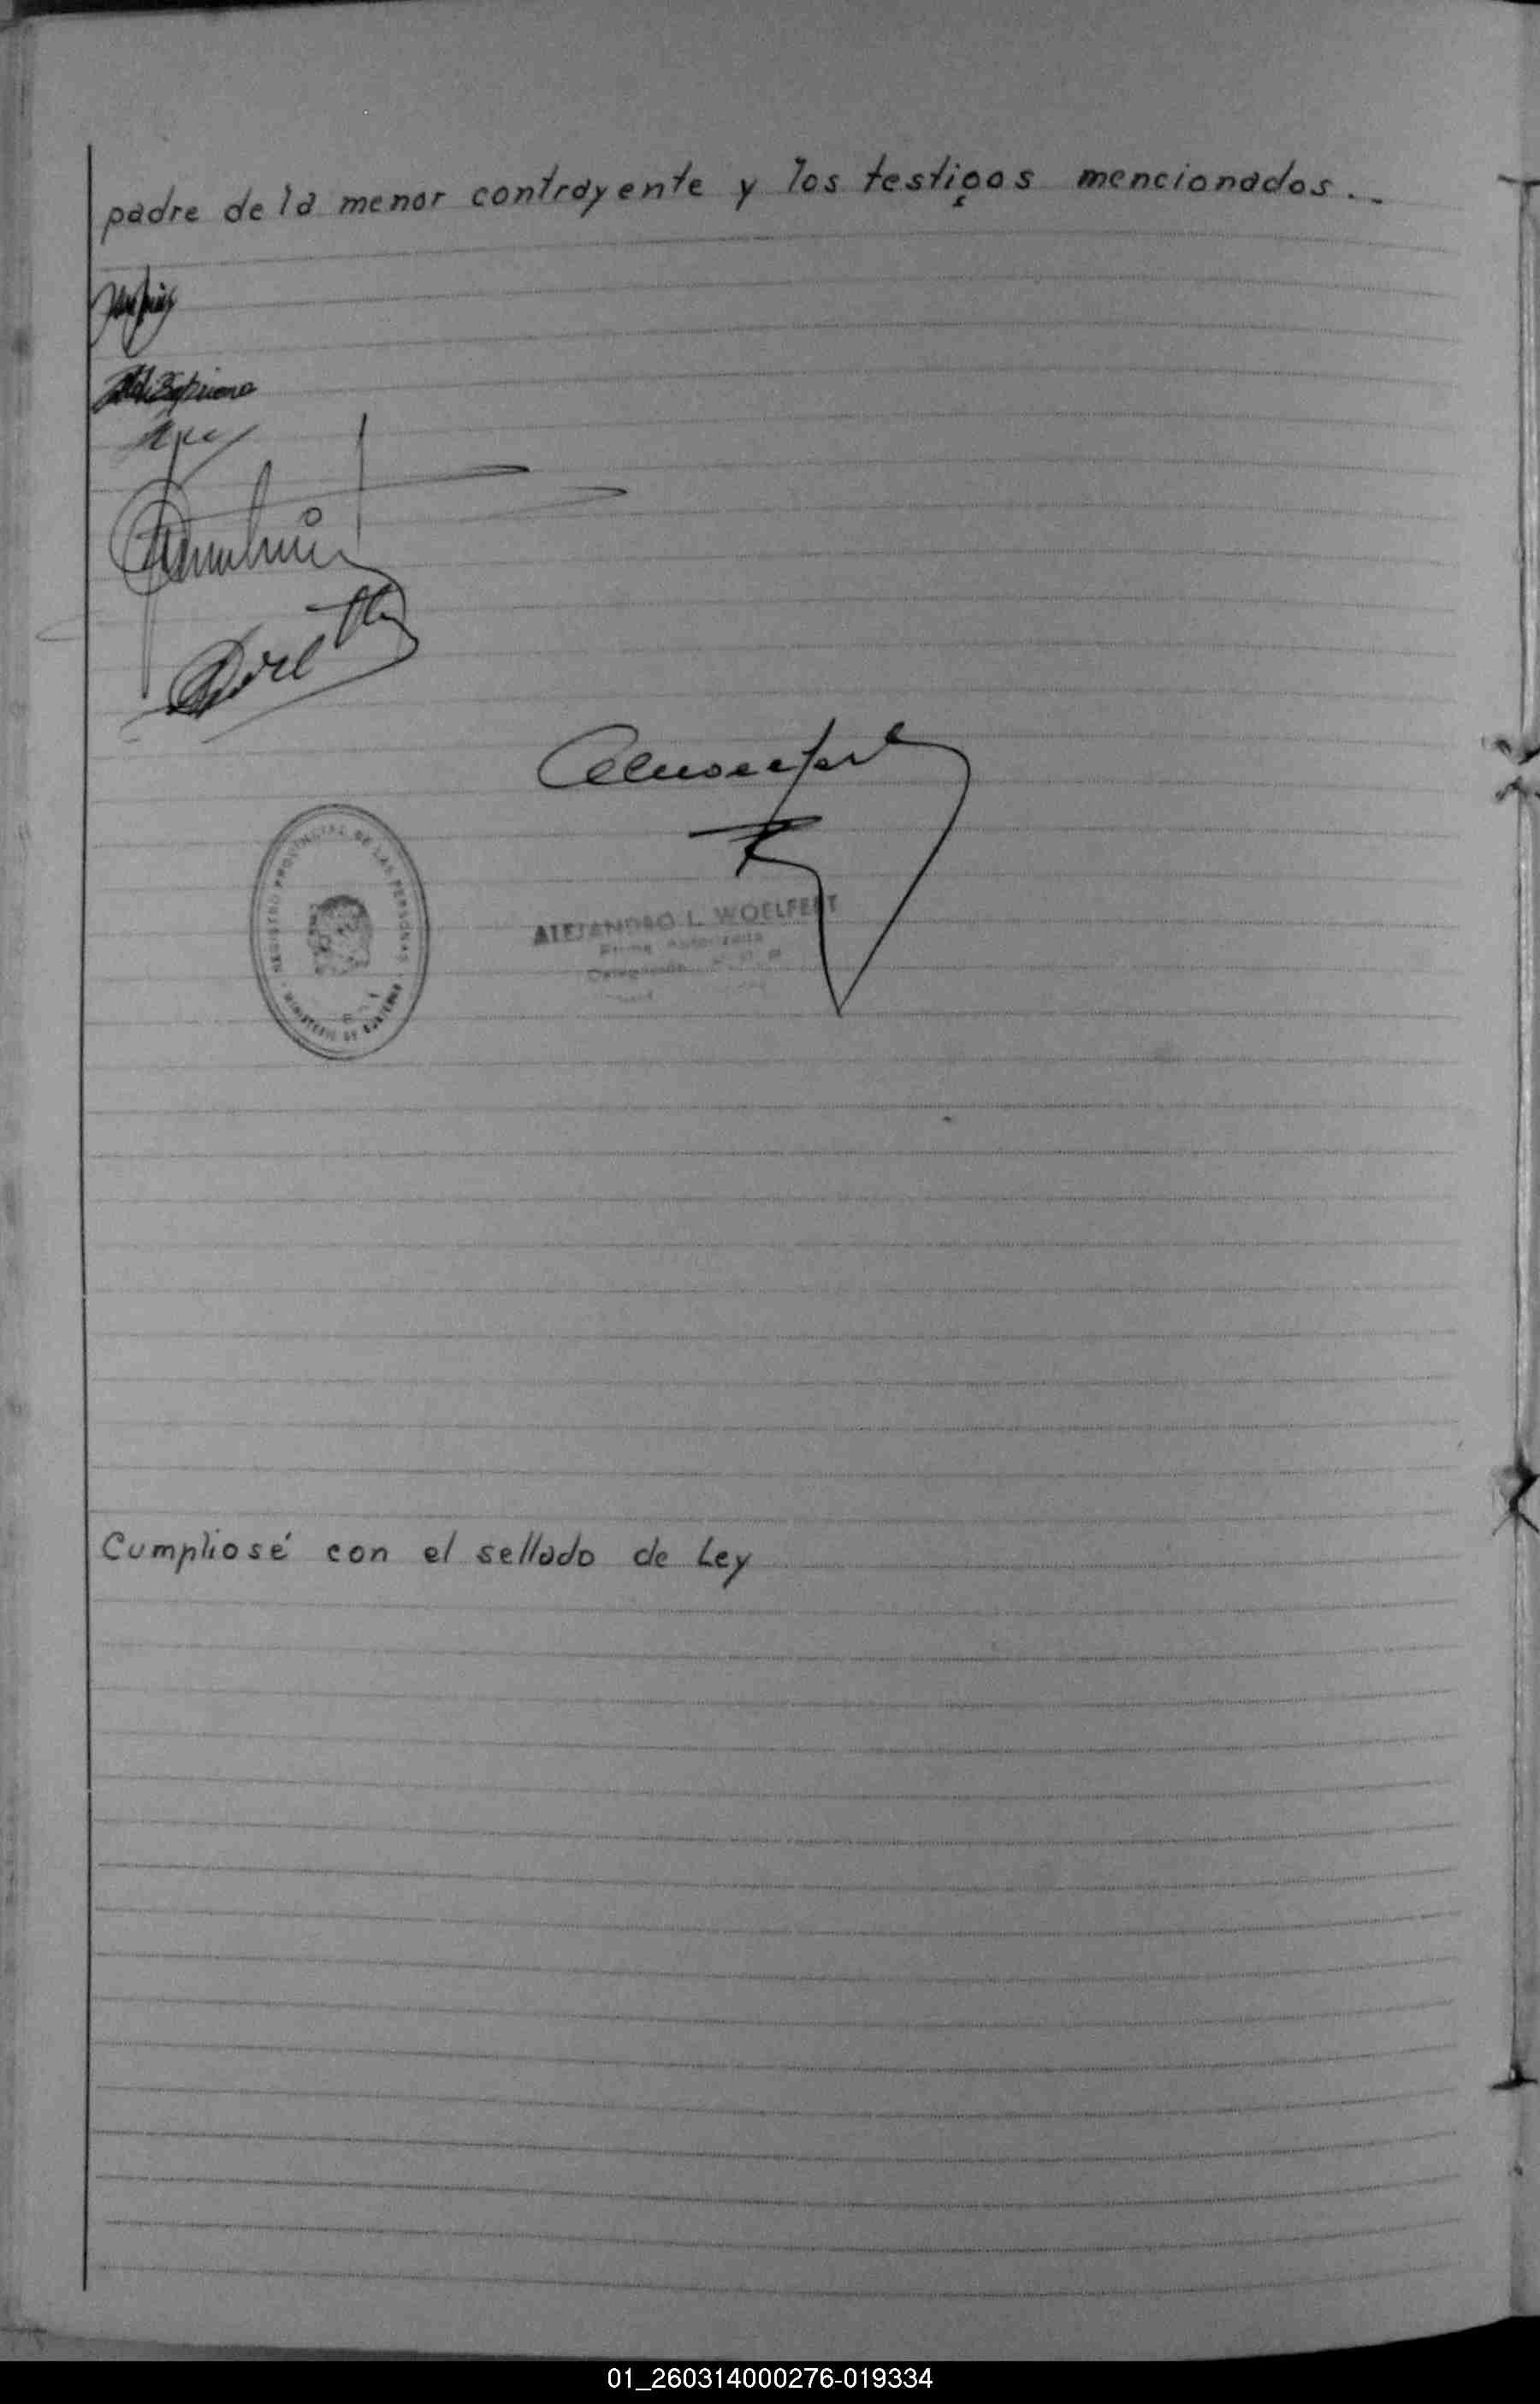 padre de la menor contrayente y los testigos mencionados..-
REGISTRO PROVINCIAL DE LAS PERSONAS
MINISTERIO DE GOBIERNO
ALEJANDRO L. WOELFERT
Firma Autorizada
Cumpliosé con el sellado de Ley
01_260314000276-019334